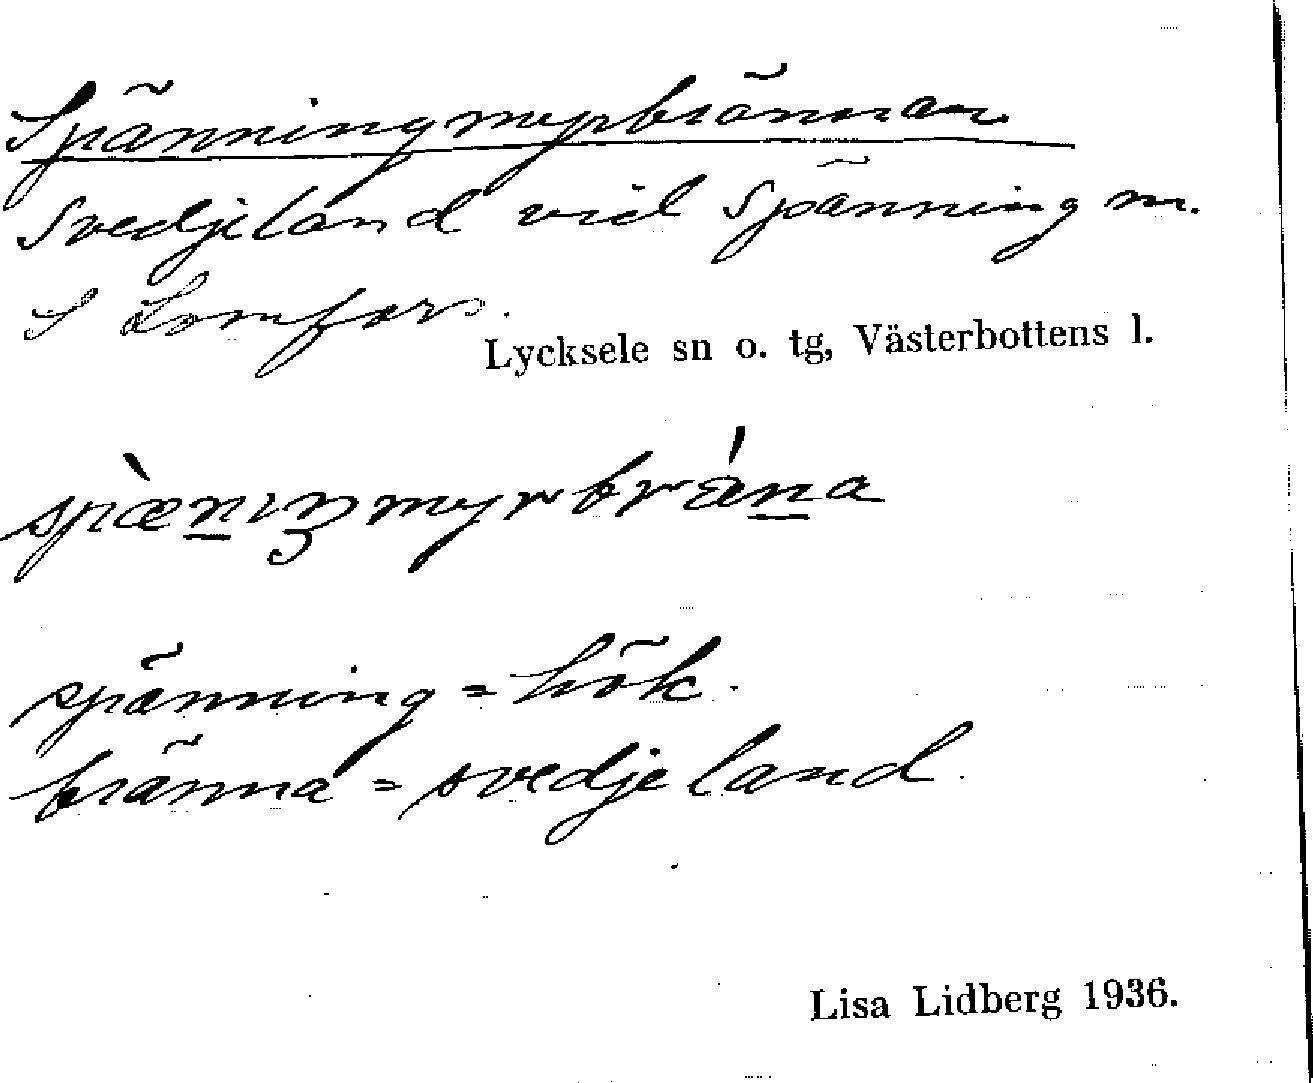 Spänningmyrbrännan
Svedjeland vid Spänning m.
S Lomfors.
Lycksele sn o. tg, Västerbottens l.
spæ̀n̲ıŋmyrbrán̲a
spänning = hök.
bränna = svedjeland.
Lisa Lidberg 1936.